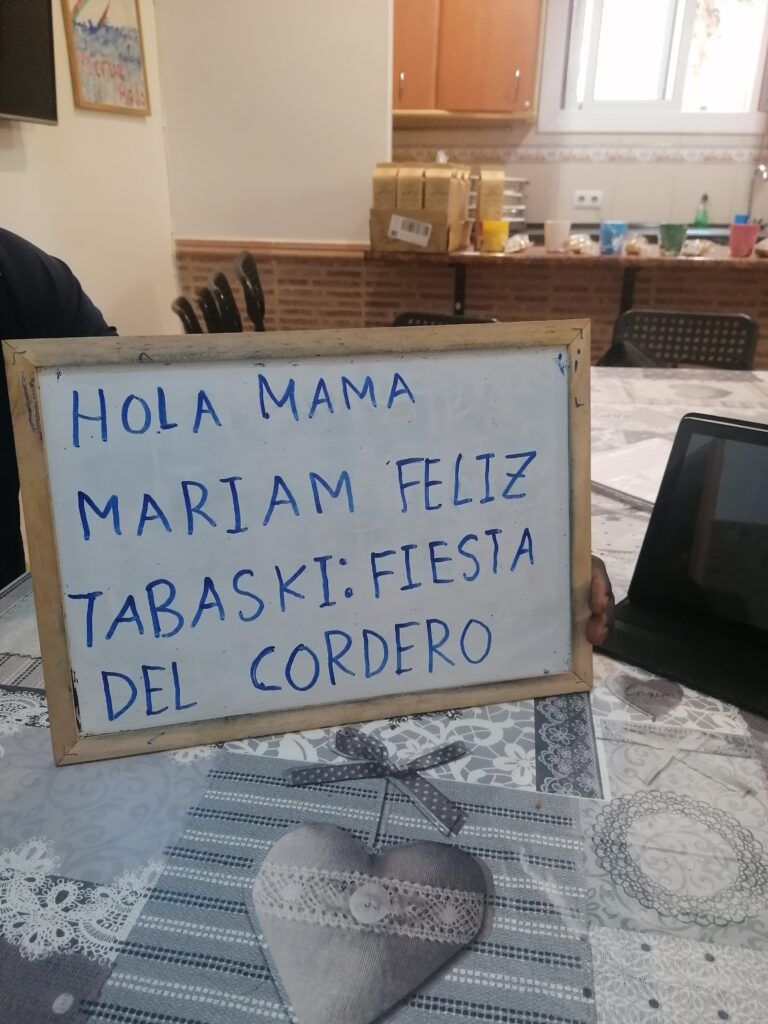 HOLA MAMA
MARIAM FELIZ
TABASKI: FIESTA
DEL CORDERO